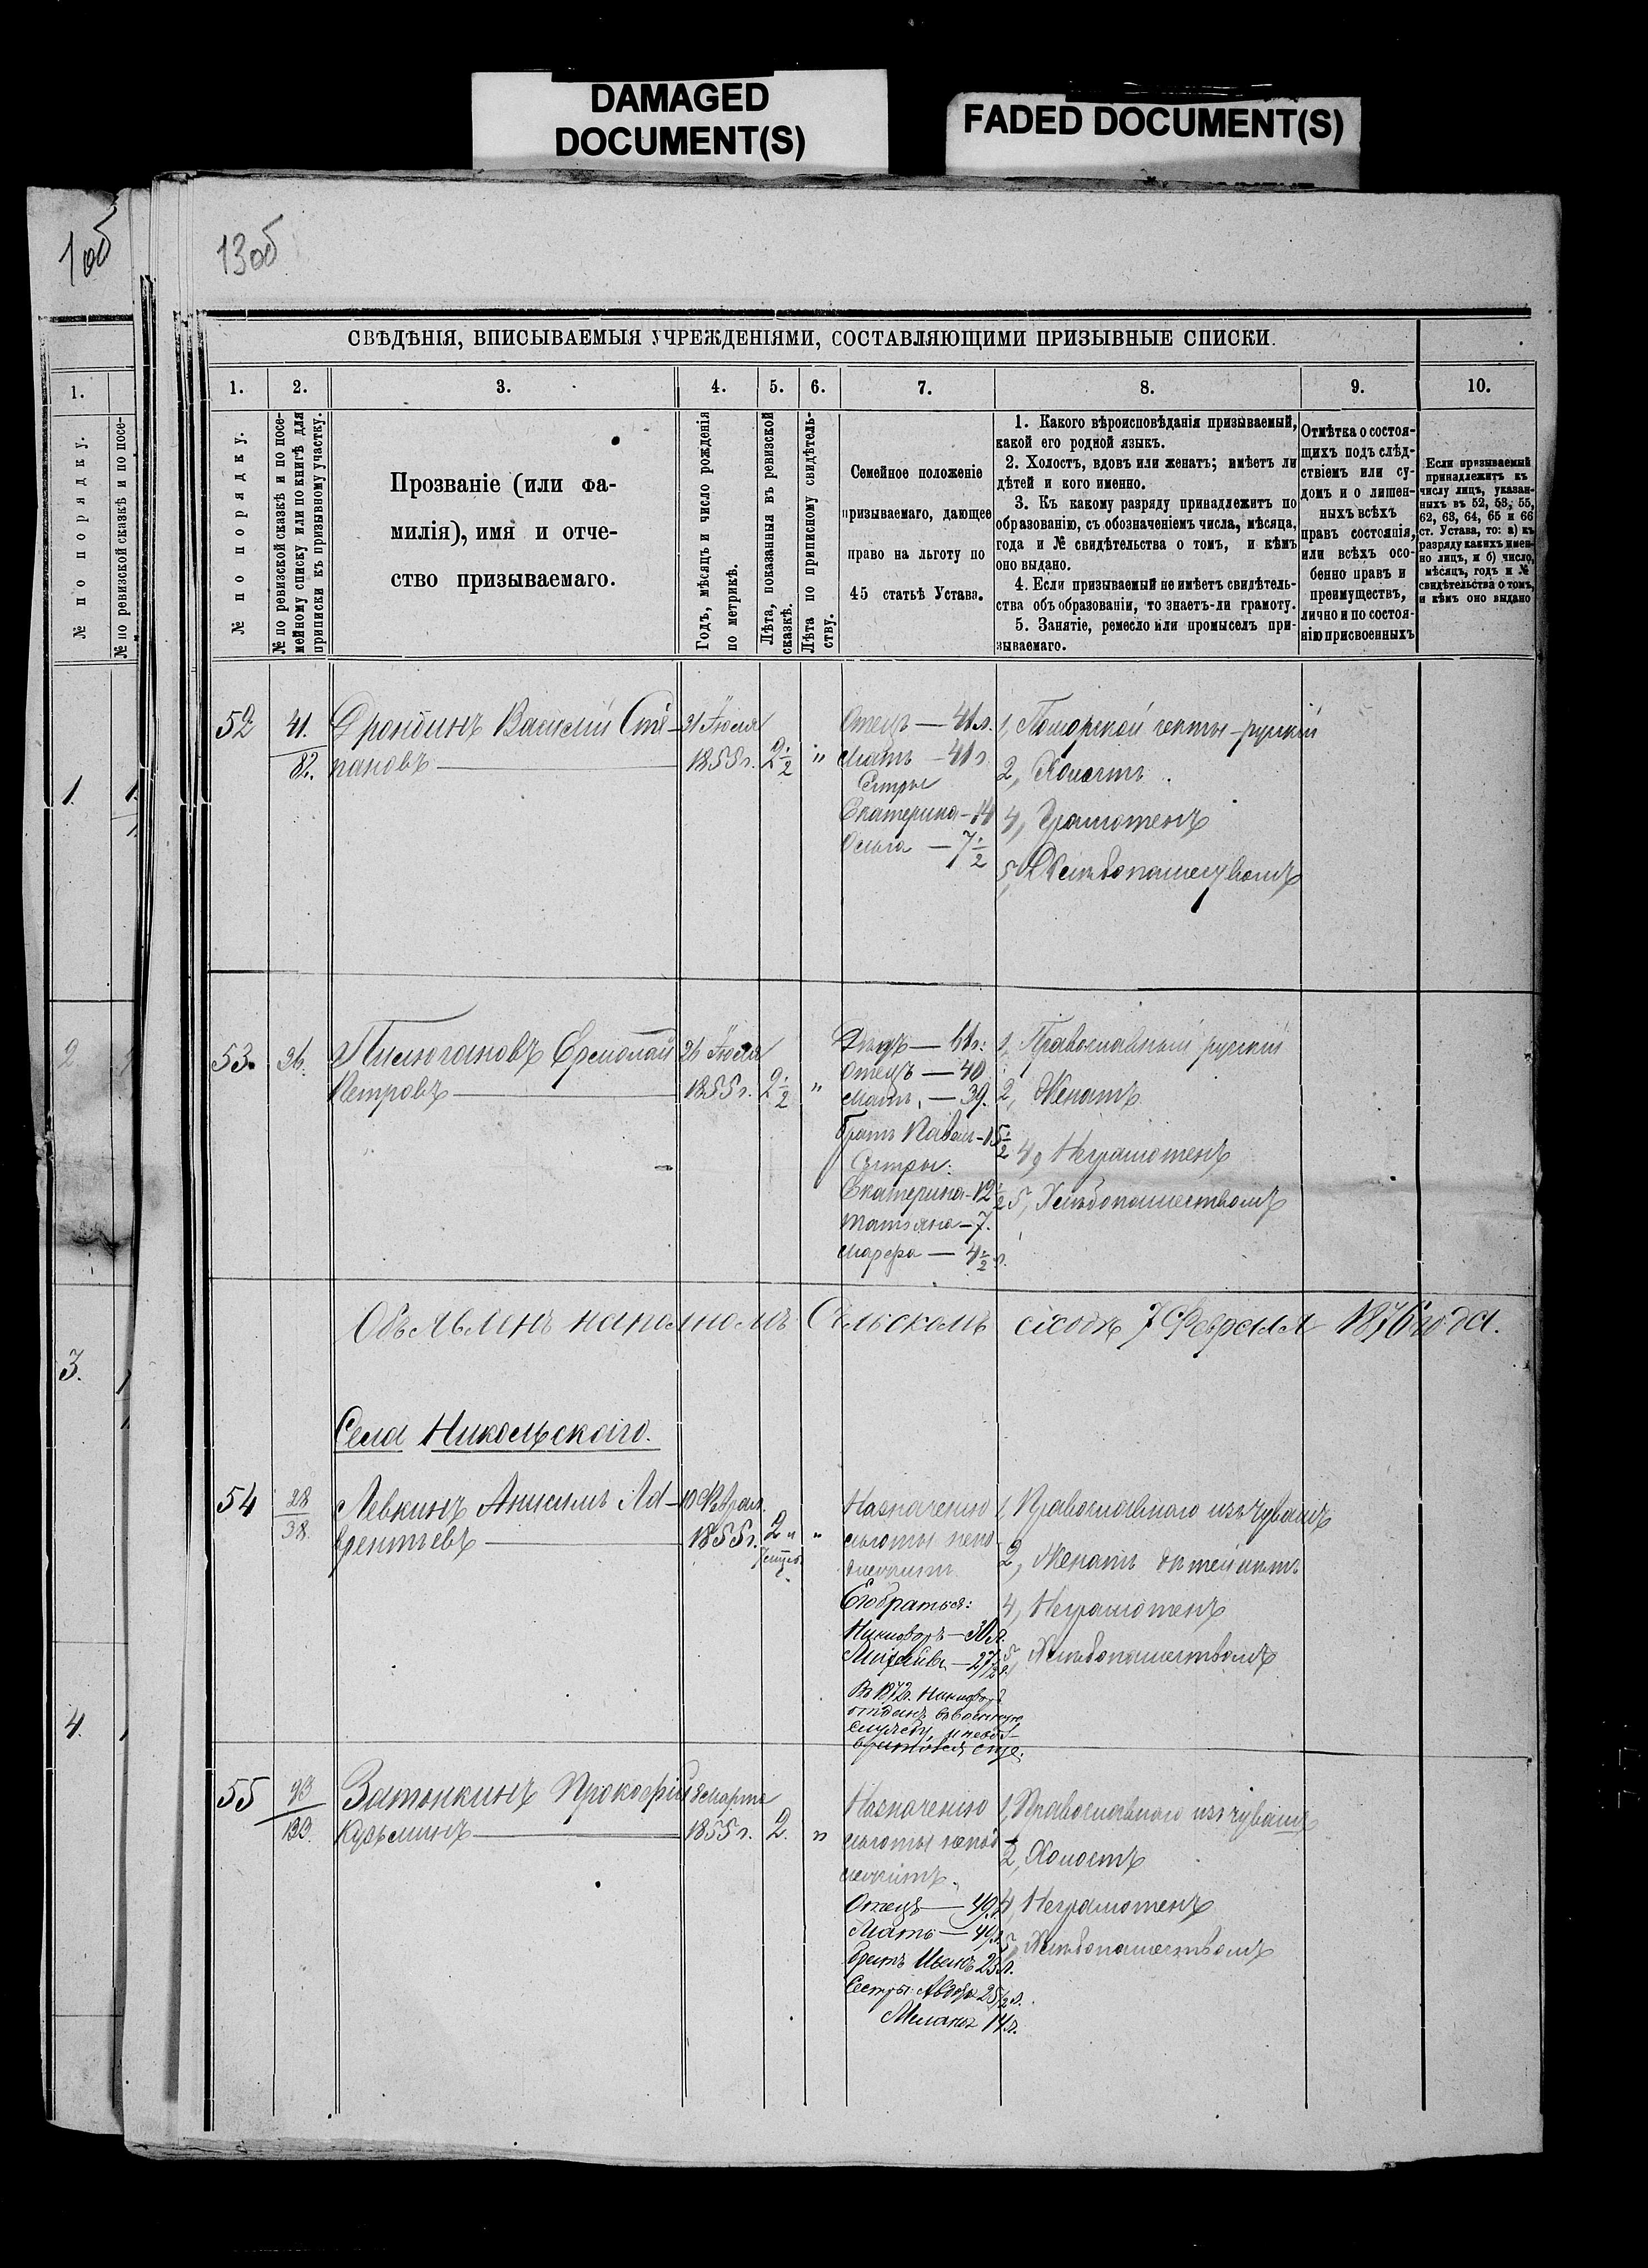 DAMAGED
DOCUMENT(S)
FADED DOCUMENT(S)
1об
13об
СВѢДѢНІЯ, ВПИСЫВАЕМЫЯ УЧРЕЖДЕНІЯМИ, СОСТАВЛЯЮЩИМИ ПРИЗЫВНЫЕ СПИСКИ.
1.
1. 2. 3. 4. 5. 6. 7. 8. 9. 10.
№ по порядку.
№ по ревизской сказкѣ и по посе-
№ по порядку.
№ по ревизской сказкѣ и по посе-
мейному списку или по книгѣ для
приписки къ призывному участку.
Прозваніе (или фа-
милія), имя и отче-
ство призываемаго.
Годъ, мѣсяцъ и число рожденія
по метрикѣ.
Лѣта, показанныя въ ревизской
сказкѣ.
Лѣта по приписному свидѣтель-
ству.
Семейное положеніе
призываемаго, дающее
право на льготу по
45 статьѣ Устава.
1. Какого вѣроисповѣданія призываемый,
какой его родной языкъ.
2. Холостъ, вдовъ или женатъ; имѣетъ ли
дѣтей и кого именно.
3. Къ какому разряду принадлежитъ по
образованію, съ обозначеніемъ числа, мѣсяца,
года и № свидѣтельства о томъ, и кѣмъ
оно выдано.
4. Если призываемый не имѣетъ свидѣтель-
ства объ образованіи, то знаетъ-ли грамоту.
5. Занятіе, ремесло или промыселъ при-
зываемаго.
Отмѣтка о состоя-
щихъ подъ слѣд-
ствіемъ или су-
домъ и о лишен-
ныхъ всѣхъ
правъ состоянія,
или всѣхъ осо-
бенно правъ и
преимуществъ,
лично и по состоя-
нію присвоенныхъ
Если призываемый
принадлежитъ къ
числу лицъ, указан-
ныхъ въ 52, 53, 55,
62, 63, 64, 65 и 66
ст. Устава, то: а) къ
разряду какихъ имен-
но лицъ, и б) число,
мѣсяцъ, годъ и №
свидѣтельства о томъ,
и кѣмъ оно выдано
1.
2
3.
4.
52 41. Василій Сте-
82. пановъ
21 Іюля
1855 г. 2 1/2 "
Отецъ — 41 л.
Мать — 41 л.
Сестры
Екатерина — 14
Ольга — 7 1/2
1, Поморской секты - русскій
2, Холостъ
4, Грамотенъ
5, Хлебопашествомъ
53. 36. Пилюгановъ Ермолай
Петровъ
26 Іюля
1855 г. 2 1/2 "
Дѣдъ — 61 г.
Отецъ — 40
Мать — 39.
братъ Павелъ — 15 1/2
Сестры:
Екатерина — 12 1/2
Татьяна — 7.
Марфа — 4 1/2 г.
1, Православный русскій
2, Женатъ
4, Неграмотенъ
5, Хлебопашествомъ
Объявленъ на полномъ Сельскомъ сходѣ 7 Февраля 1876 года.
Села Никольскаго.
54 28/38. Левкинъ Анисимъ Ла-
врентьевъ
10 Феврал.
1855 г. 2 "
Назначенію
льготы непо-
длежитъ
Его братья:
Никифоръ — 30 л.
27 1/2
Въ 1872 г. Никифоръ
отданъ въ военную
службу, и невоз-
вратился еще.
1, Православнаго изъ чувашъ
2, Женатъ дѣтей нѣтъ
4, Неграмотенъ
5, Хлебопашествомъ
55 93/133. Затонкинъ Прокофій
Кузьминъ
8 марта
1855 г. 2. "
Назначенію
льготы непод-
лежитъ.
Отецъ — 49 л.
Мать — 49 л.
братъ 23 л.
Сестры: Авдотья 25 1/2 л.
14 л.
1, Православнаго изъ чувашъ
2, Холостъ
4, Неграмотенъ
5, Хлебопашествомъ